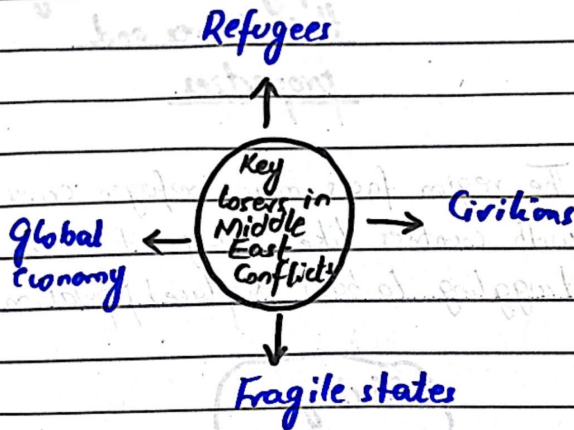 Refugees
Key
losers in
Middle
East
Conflicts
Civilions
global
economy
Fragile states